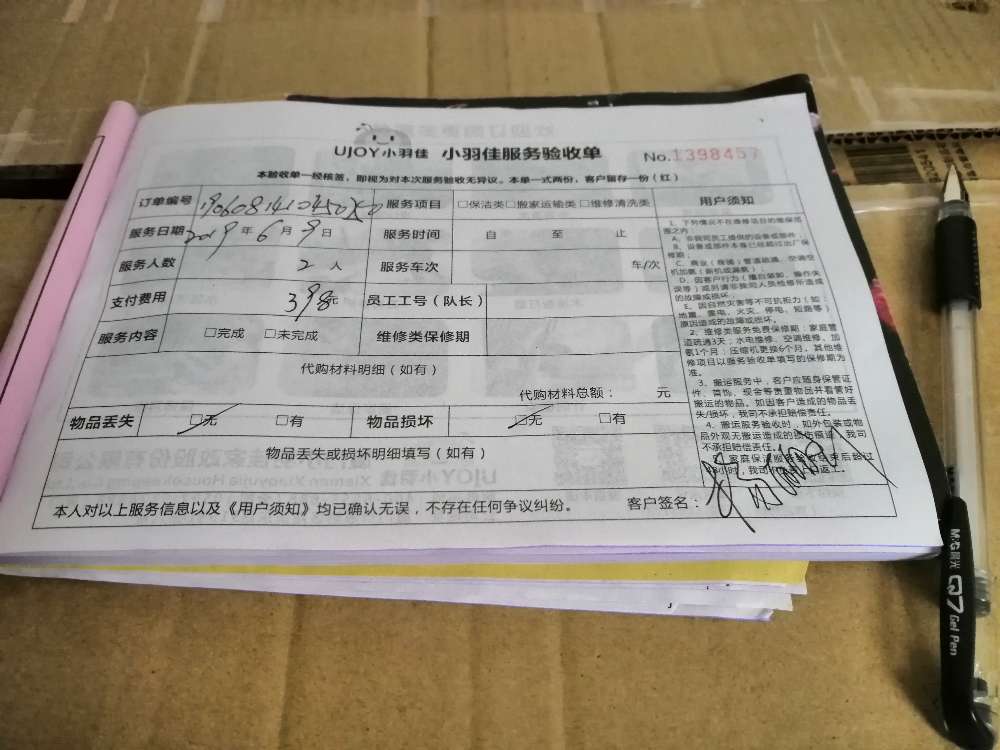 UJOY小羽佳 小羽佳服务验收单 No.1398457
本验收单一经核签,即视为对本次服务验收无异议。本单一式两份,客户留存一份(红)
订单编号 服务项目 □保洁类□搬家运输类□维修清洗类 用户须知
服务日期 2019年6月9日 服务时间 自 至 止
服务人数 2人 服务车次 车/次
支付费用 398元 员工工号(队长)
服务内容 □完成 □未完成 维修类保修期
代购材料明细(如有)
代购材料总额: 元
物品丢失 □无 □有 物品损坏 □无 □有
物品丢失或损坏明细填写(如有)
本人对以上服务信息以及《用户须知》均已确认无误,不存在任何争议纠纷。 客户签名:
1、下列情况不在维修项目的维保范
围之内:
A、非我司员工提供的设备或部件;
B、设备或部件本身已经超过出厂保
修期;
C、商业(商铺)管道疏通、空调空
机加氨(新机或漏氨)
D、因客户行为(擅自装卸、操作失
误等)或另请非我司人员检修所造成
的故障或损坏。
E、因自然灾害等不可抗拒力(如:
地震、雷电、火灾、停电、短路等)
原因造成的故障或损坏。
2、维修类服务免费保修期:家庭管
道疏通3天;水电维修、空调维修、加
氨1个月;压缩机更换6个月。其他维
修项目以服务验收单填写的保修期为
准。
3、搬运服务中,客户应随身保管证
件、首饰、现金等贵重物品并看管好
搬运的物品。如因客户造成的物品丢
失/损坏,我司不承担赔偿责任。
4、搬运服务验收时,如外包装或物
品外观无搬运造成的损伤痕迹,我司
不承担赔偿责任。
M&G晨光 Q7 Gel Pen